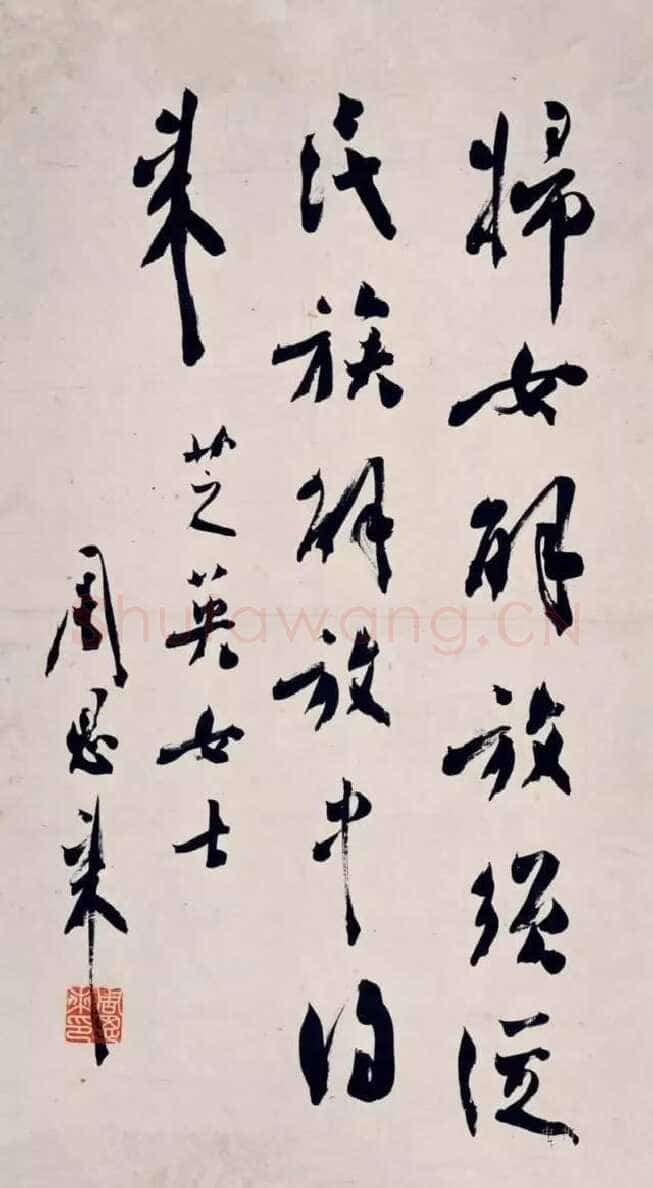 婦女解放須從
民族解放中得
來 芝英女士
周恩來
周恩來印
Shufawang.CN